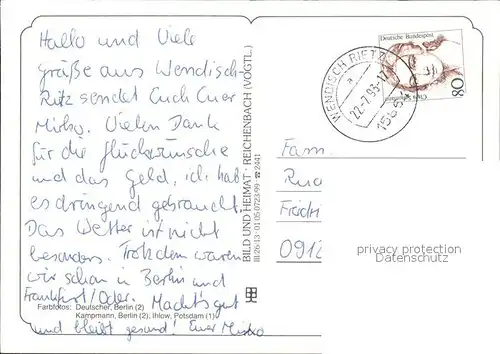 Hallo und Viele
grüße aus Wendisch-
Ritz sendet Euch Euer
Mirko. Vielen Dank
für die glückwünsche
und das Geld, ich hab
es dringend gebraucht.
Das Wetter ist nicht
besonders. Trotzdem waren
wir schon in Berlin und
Frankfurt/Oder. Macht's gut
und bleibt gesund! Euer Mirko
Farbfotos: Deutscher, Berlin (2)
Kampmann, Berlin (2), Ihlow, Potsdam (1)
BILD UND HEIMAT · REICHENBACH (VOGTL.)
III/26-13 · 01 05 0723/99 · ☎ 2441
WENDISCH RIETZ
22.-7.93-17
Deutsche Bundespost
80
Fam.
091
privacy protection
Datenschutz